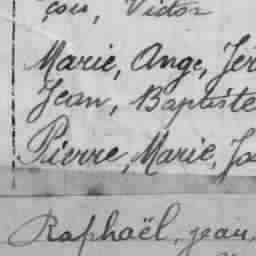 çois, Victor
Marie, Ange, Jér
Jean, Baptiste
Pierre, Marie, Jo
Raphaël, jean,